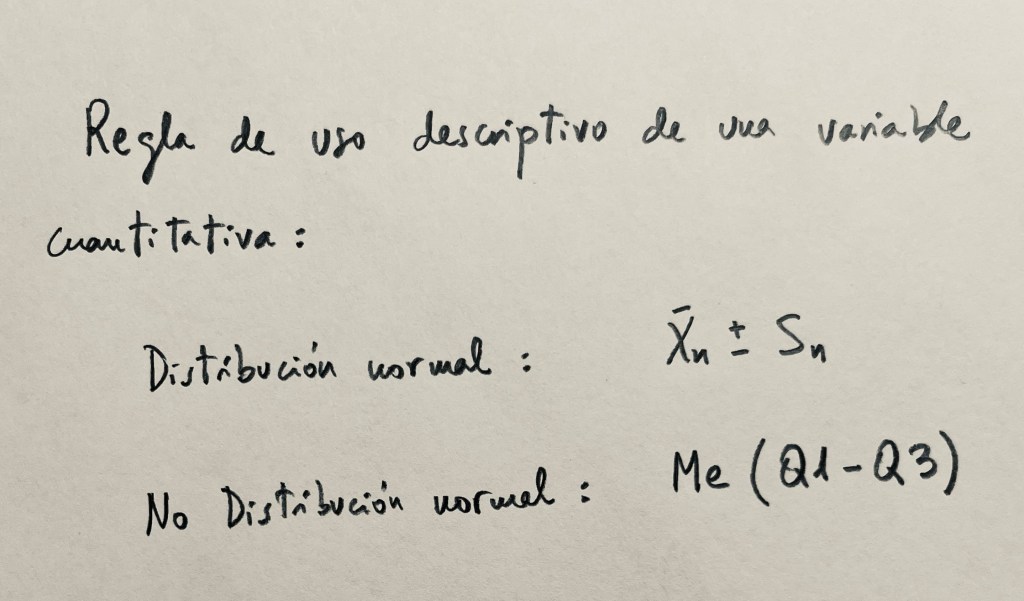 Regla de uso descriptivo de una variable
cuantitativa:
Distribución normal: X̄n ± Sn
No Distribución normal: Me (Q1-Q3)